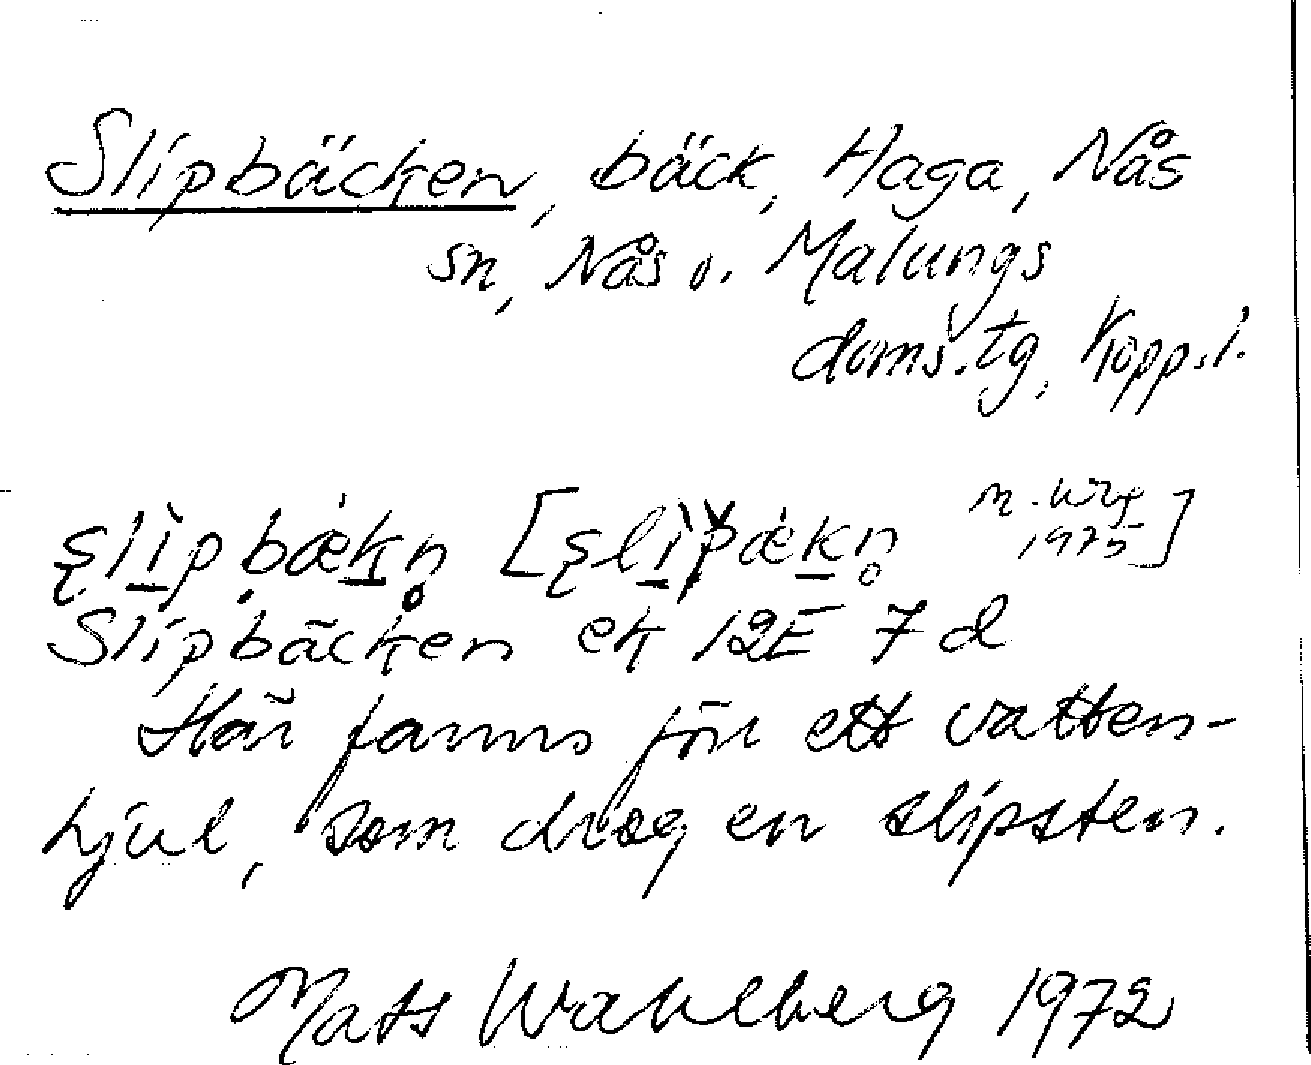 Slipbäcken, bäck, Haga, Nås
sn, Nås o. Malungs
doms.tg, Kopp.l.
Slipbäcken ek 12E 7d
Här fanns förr ett vatten-
hjul, som drog en slipsten.
Mats Wahlberg 1972